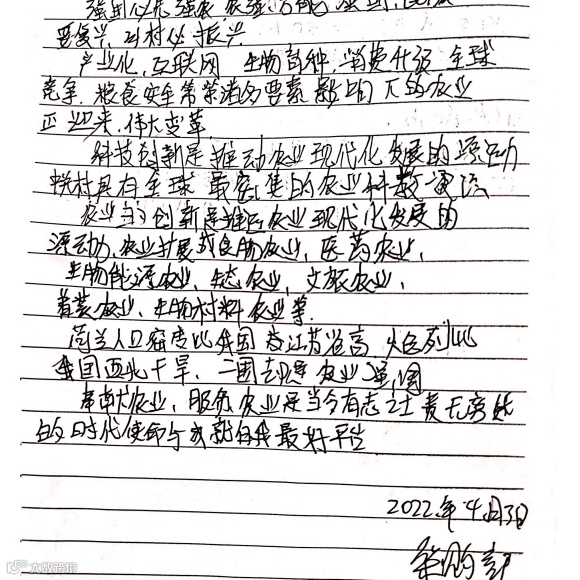 强国必先强农,农强方能国强,民族
要复兴,乡村必振兴.
产业化,互联网,生物育种,消费升级,全球
竞争,粮食安全等渠道的要素影响下的农业
正迎来,伟大变革.
科技创新是推动农业现代化发展的源动
具有全球最密集的农业科教资源
农业的创新是推进农业现代化发展的
源动力,农业扩展成食物农业,医药农业,
生物能源农业,生态农业,文旅农业,
着装农业,生物材料农业等.
荷兰人口密度比我国 江苏省高,以色列比
我国西北干旱,二国却是农业强国
奉献大农业,服务农业是当今有志之士责无旁贷
的时代使命与成就自我最好平台
2022年4月3日